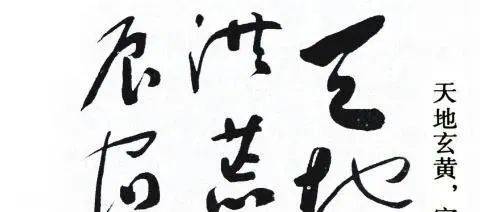 天地玄黄，
天地
洪荒
辰宿